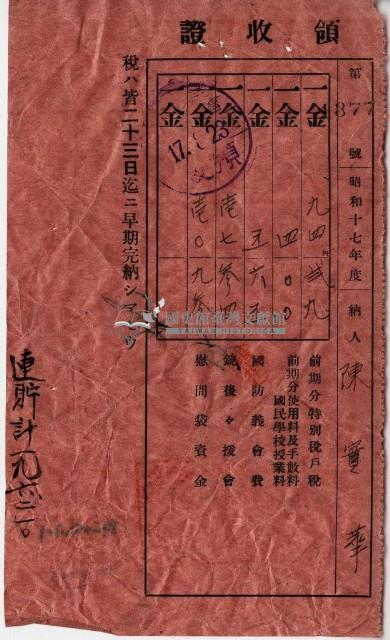 領收證
第 377 號 昭和十七年度 納人 陳寶華
一金 九四貳九 前期分特別稅戶稅
一金 四〇〇 前期分使用料及手數料 國民學校授業料
一金 五六五 國防義會費
一金 壱七參四 銃後々援會
一金 壱〇九參 慰問袋資金
一金
17. 23
稅ハ皆二十三日迄ニ早期完納シマセウ
國史館臺灣文獻館
TAIWAN HISTORICA